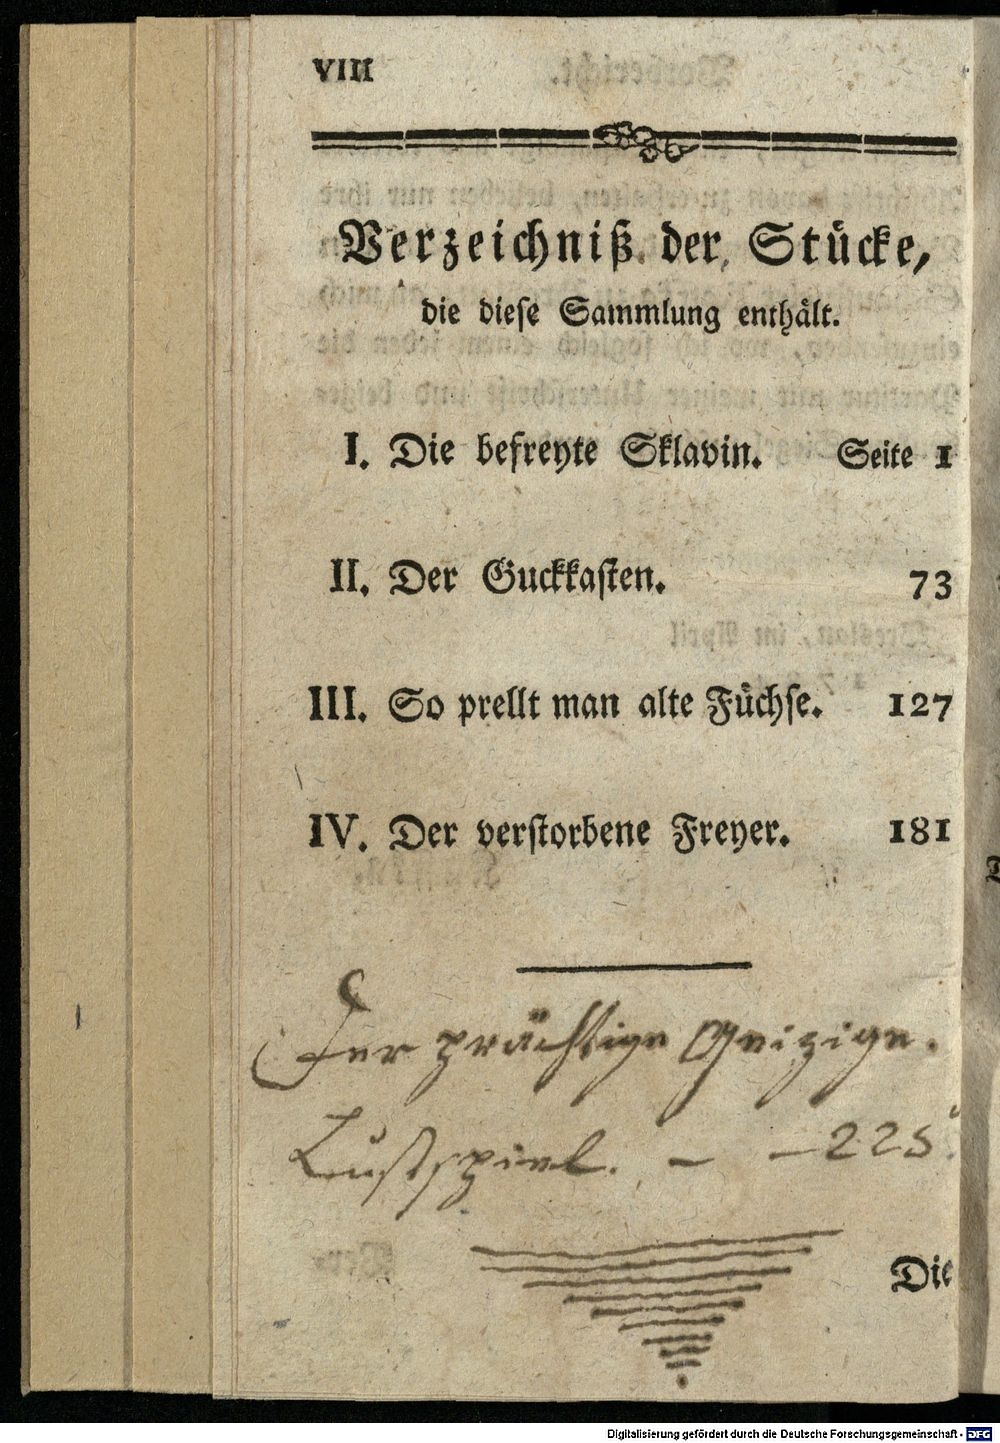 VIII
Verzeichniß der Stücke,
die diese Sammlung enthält.
I. Die befreyte Sklavin. Seite 1
II. Der Guckkasten. 73
III. So prellt man alte Füchse. 127
IV. Der verstorbene Freyer. 181
Der prächtige Geizige.
Lustspiel. — — 225.
Die
Digitalisierung gefördert durch die Deutsche Forschungsgemeinschaft - DFG